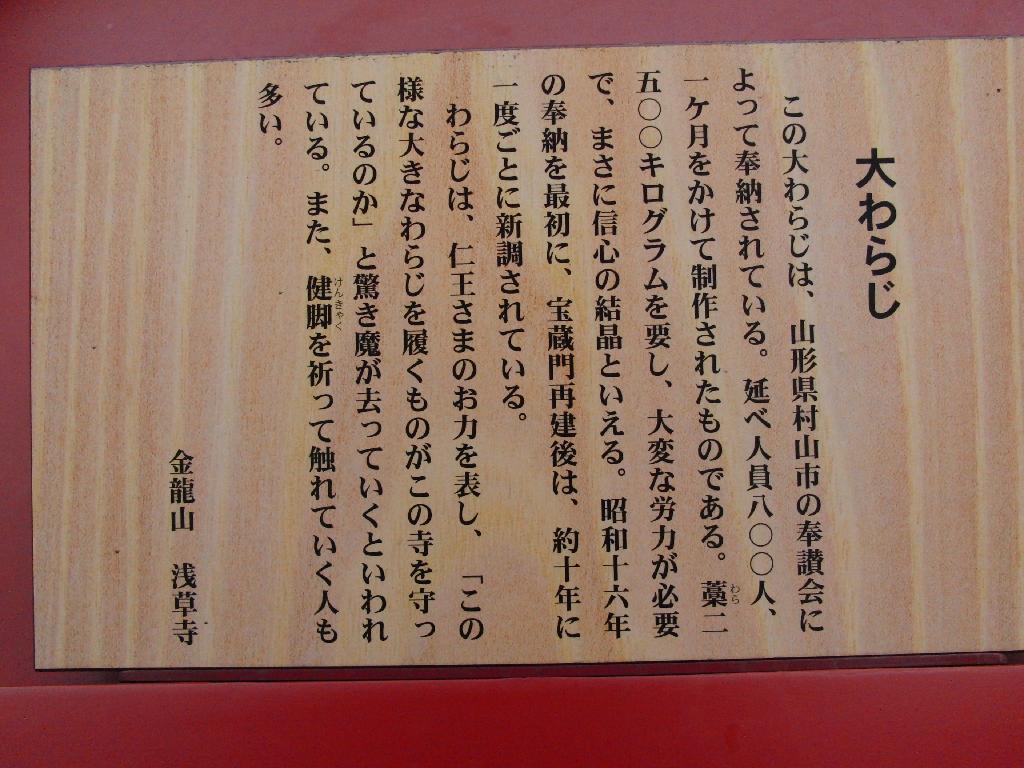 大わらじ
この大わらじは、山形県村山市の奉讃会に
よって奉納されている。延べ人員八〇〇人、
一ケ月をかけて制作されたものである。藁二
わら
五〇〇キログラムを要し、大変な労力が必要
で、まさに信心の結晶といえる。昭和十六年
の奉納を最初に、宝蔵門再建後は、約十年に
一度ごとに新調されている。
わらじは、仁王さまのお力を表し、「この
様な大きなわらじを履くものがこの寺を守っ
ているのか」と驚き魔が去っていくといわれ
ている。また、健脚を祈って触れていく人も
けんきゃく
多い。
金龍山 浅草寺